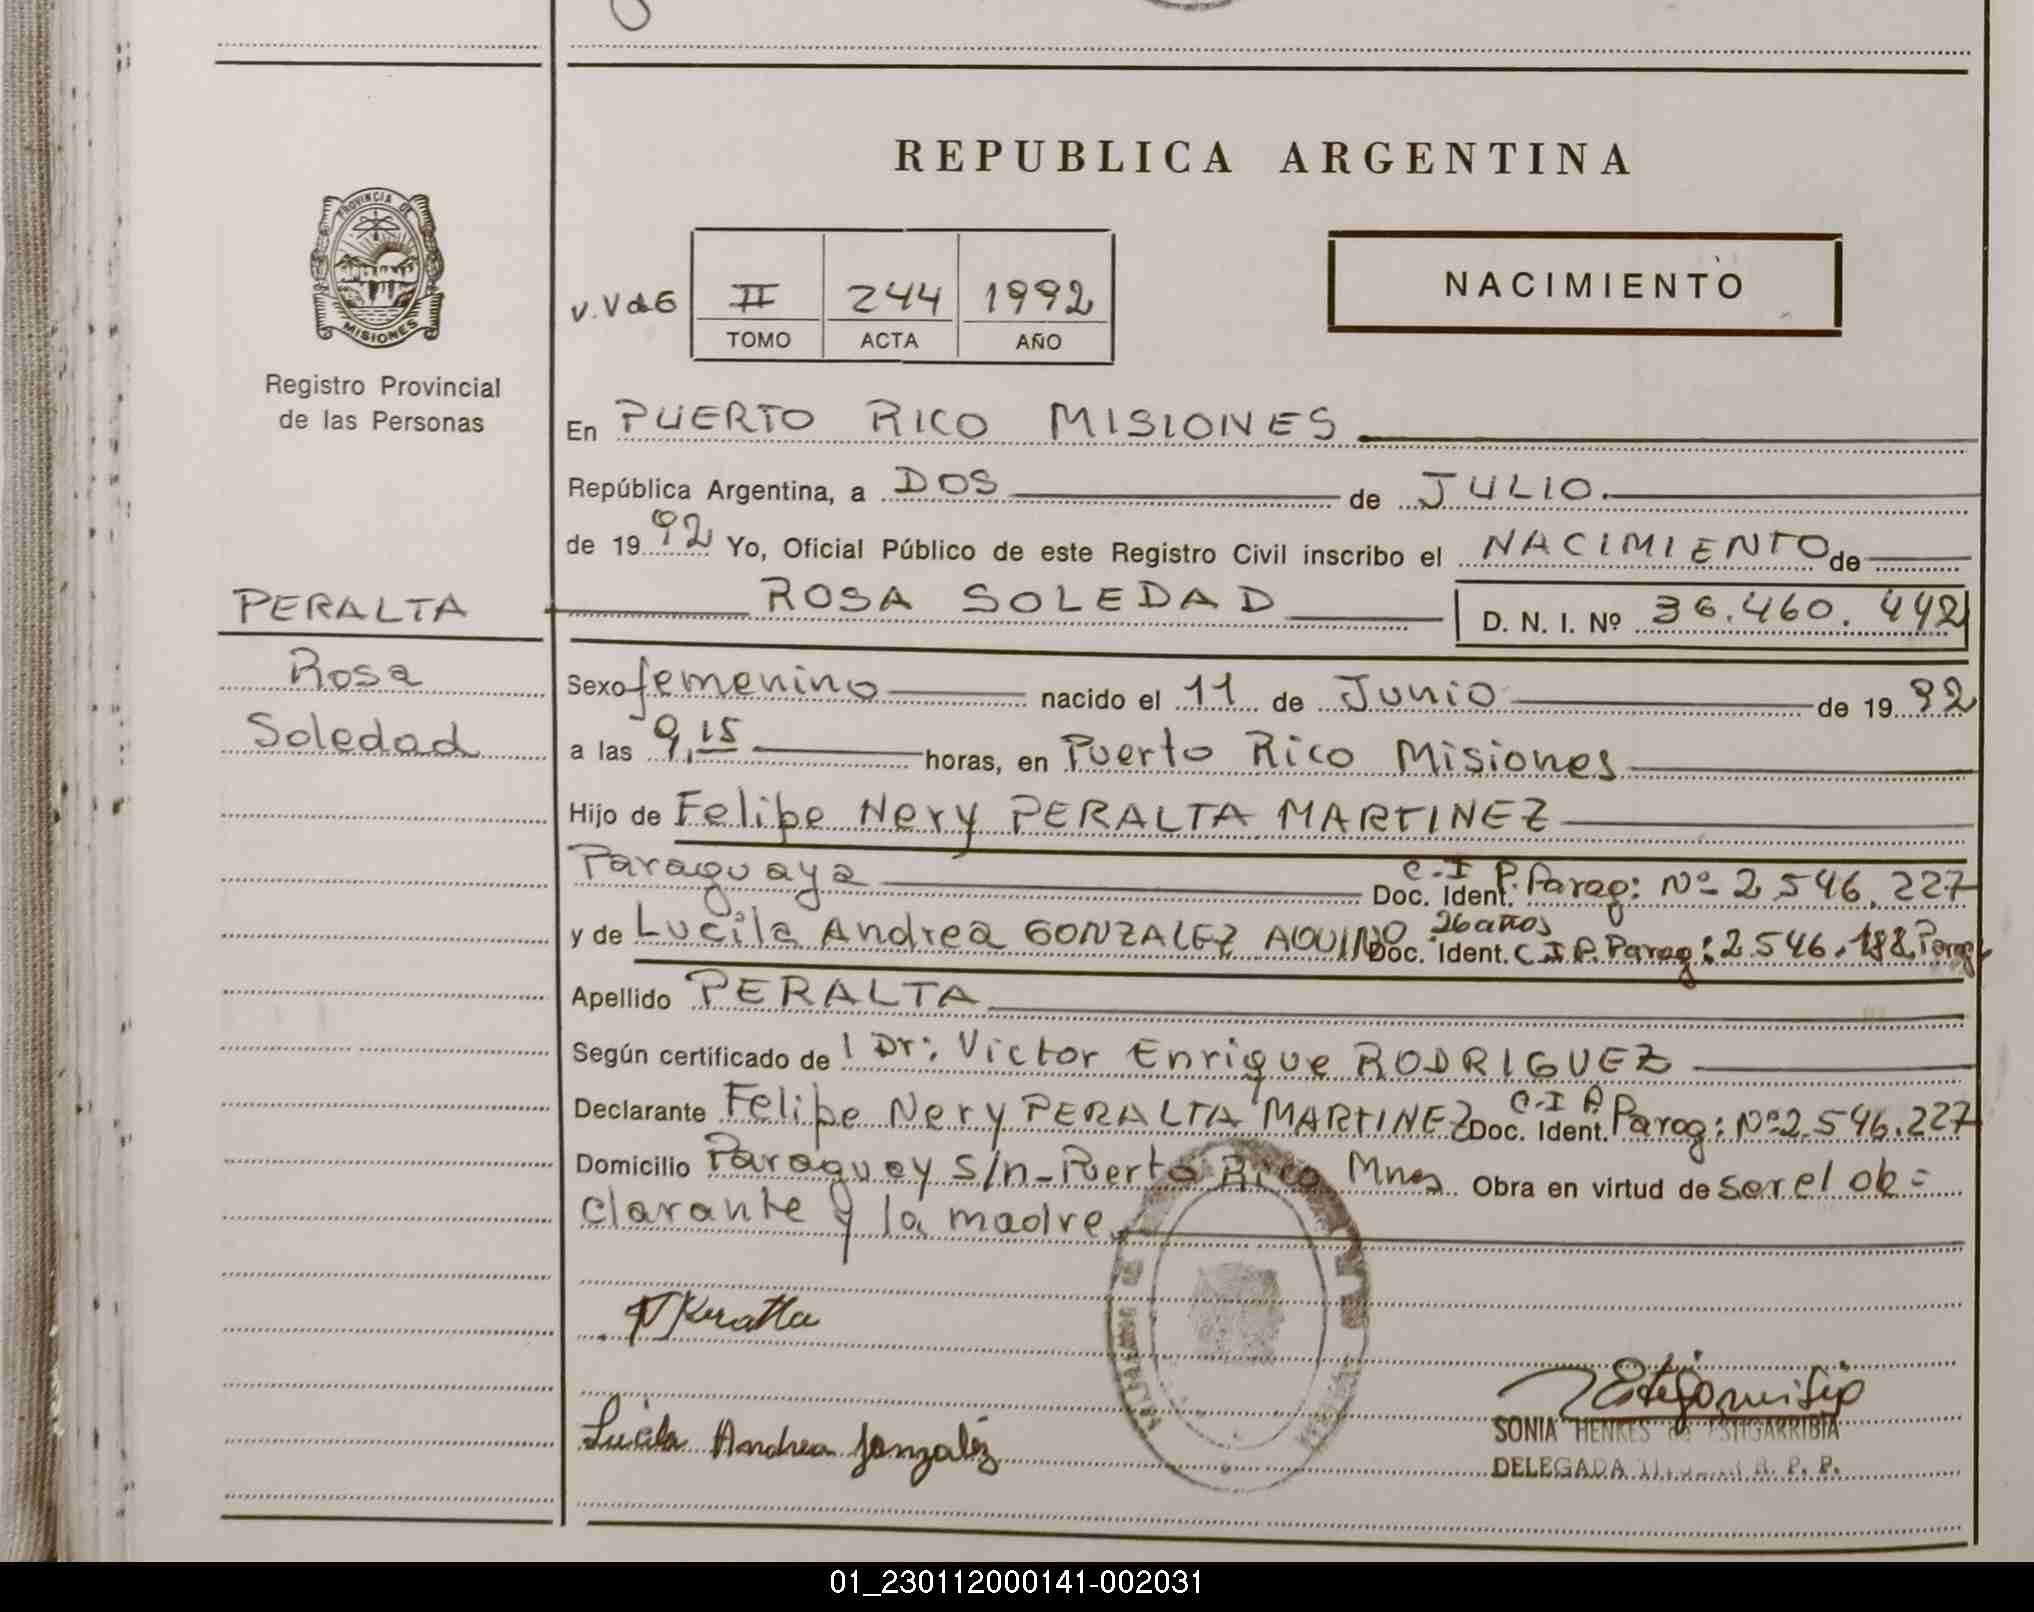 REPUBLICA ARGENTINA
PROVINCIA DE
MISIONES
Registro Provincial
de las Personas
II 244 1992
TOMO ACTA AÑO
NACIMIENTO
En PUERTO RICO MISIONES
República Argentina, a DOS de JULIO.
de 1992 Yo, Oficial Público de este Registro Civil inscribo el NACIMIENTO de
PERALTA
Rosa
Soledad
ROSA SOLEDAD D. N. I. Nº 36.460.442
Sexo femenino nacido el 11 de Junio de 1992
a las 9,15 horas, en Puerto Rico Misiones
Hijo de Felipe Nery PERALTA MARTINEZ
Paraguaya Doc. Ident. C.I.P. Parag: Nº 2.546.227
y de Lucila Andrea GONZALEZ AQUINO 26 años Doc. Ident. C.I.P. Parag: 2.546.182 Parag
Apellido PERALTA
Según certificado de l Dr: Victor Enrique RODRIGUEZ
Declarante Felipe Nery PERALTA MARTINEZ Doc. Ident. C.I.P. Parag: Nº 2.546.227
Domicilio Paraguay s/n - Puerto Rico Mnes Obra en virtud de ser el de=
clarante y la madre.
Peralta
Lucila Andrea Gonzalez
SONIA HENKES de ESTIGARRIBIA
DELEGADA TITULAR R. P. P.
01_230112000141-002031